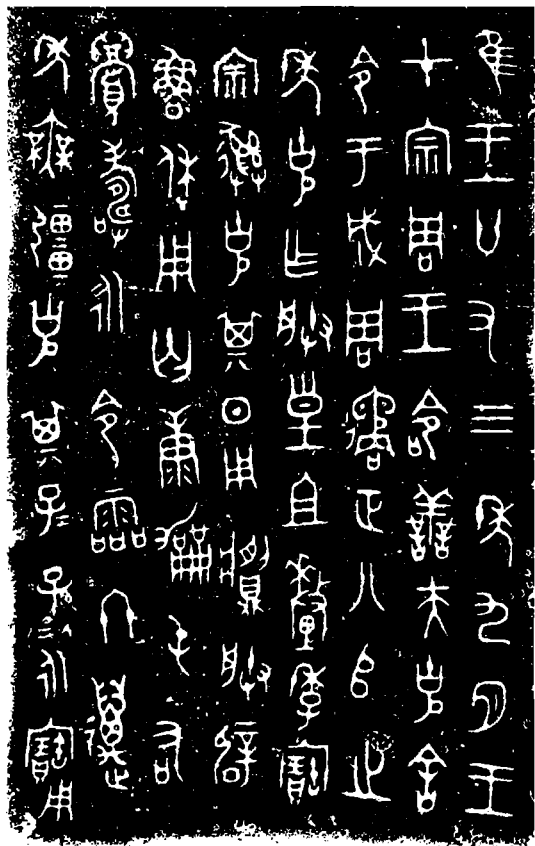 隹王廿又三年九月王
才宗周王命善夫克舍
令于成周遹正八𠂤之
年克乍朕皇且釐季寶
宗彝克其日用䵼朕辟
魯休用匄康勵屯右
眉壽永令霝冬邁
年無疆克其子子孫孫永寶用